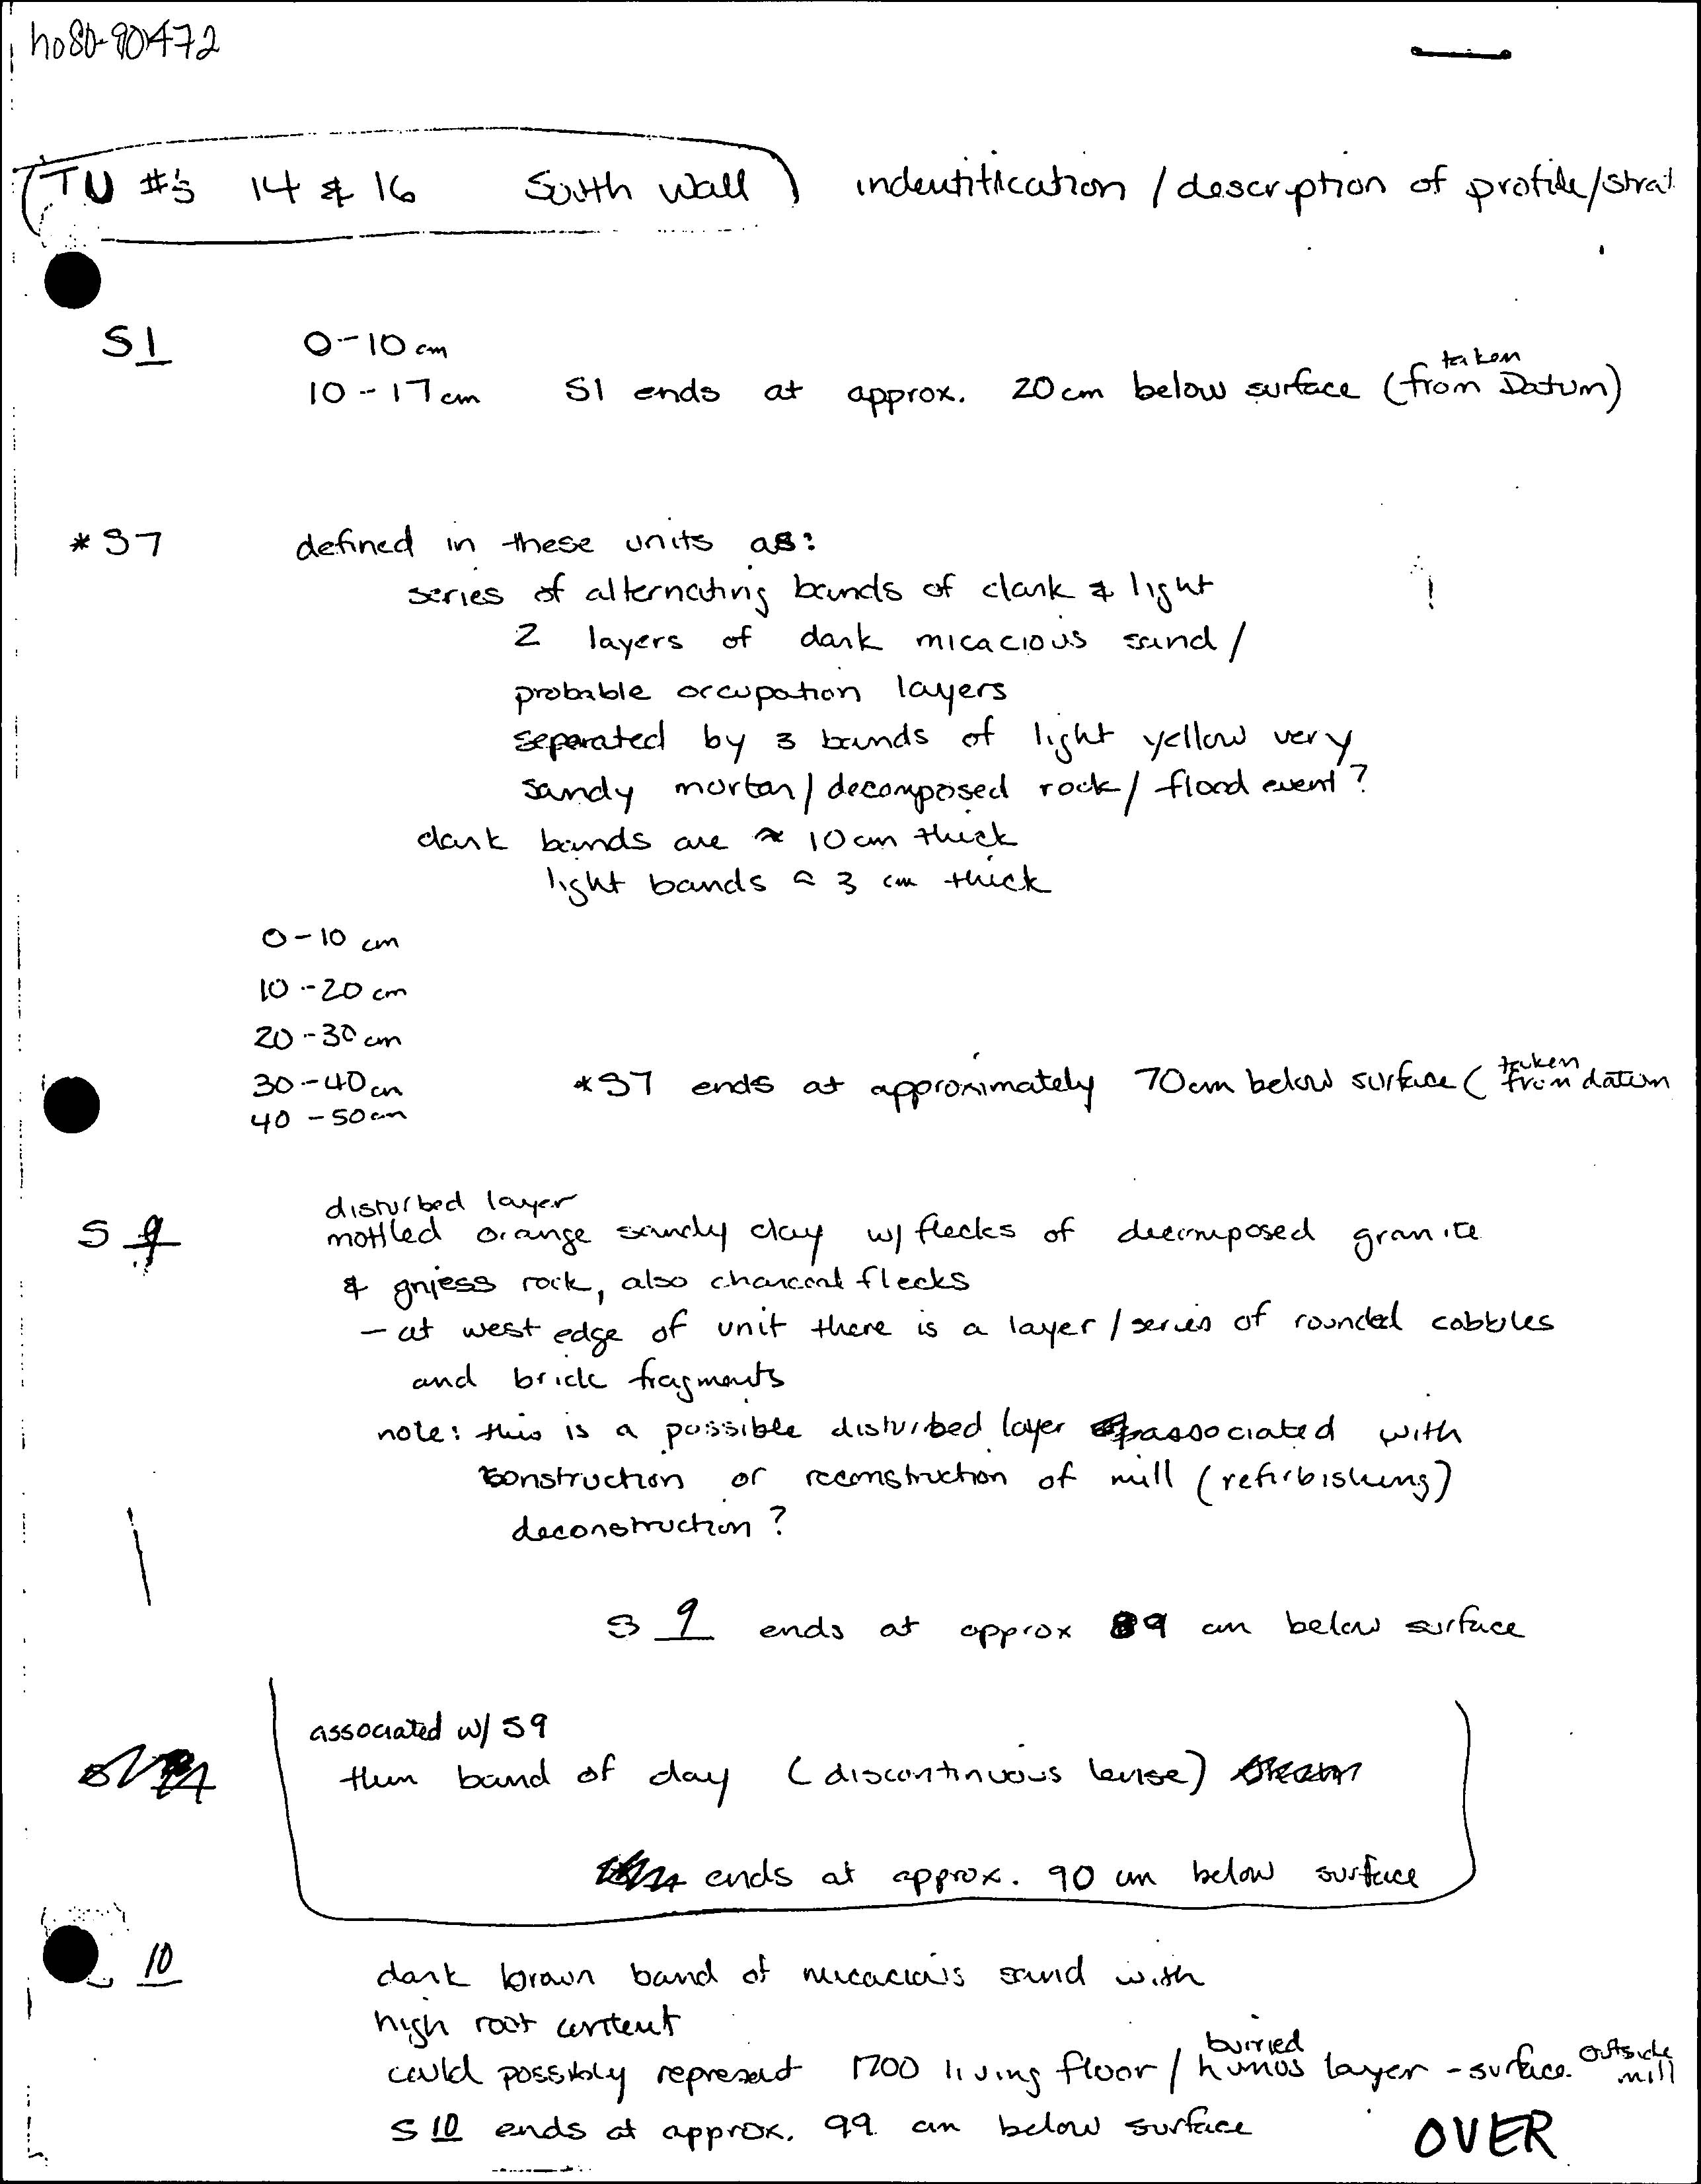 ho80-90472
TU #'s 14 & 16 South Wall indentification / description of profile/strat
S1 0-10 cm
taken
10-17 cm S1 ends at approx. 20 cm below surface (from Datum)
*S7 defined in these units as:
series of alternating bands of dark & light
2 layers of dark micacious sand /
probable occupation layers
separated by 3 bands of light yellow very
sandy mortar / decomposed rock / flood event?
dark bands are ≈ 10 cm thick
light bands ≈ 3 cm thick
0-10 cm
10-20 cm
20-30 cm
taken
30-40 cm *S7 ends at approximately 70 cm below surface (from datum
40-50 cm
disturbed layer
S 9 mottled orange sandy clay w/ flecks of decomposed granite
& gniess rock, also charcoal flecks
- at west edge of unit there is a layer / series of rounded cobbles
and brick fragments
note: this is a possible disturbed layer associated with
construction or reconstruction of mill (refirbishing)
deconstruction?
S 9 ends at approx 89 cm below surface
associated w/ S9
thin band of clay (discontinuous lense)
ends at approx. 90 cm below surface
10 dark brown band of micacious sand with
high root content
burried outside
could possibly represent 1700 living floor / humus layer - surface mill
S 10 ends at approx. 99 cm below surface
OVER